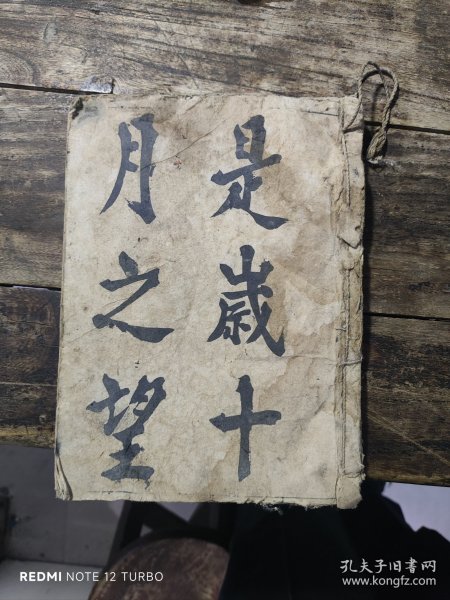 是歲十
月之望
REDMI NOTE 12 TURBO
孔夫子旧書网
www.kongfz.com